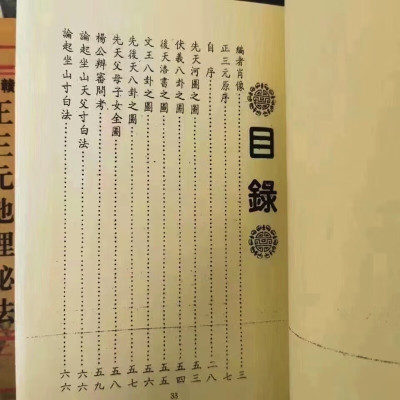 目錄
編者肖像……三
正三元原序……七
自序……二八
先天河圖之圖……五三
伏羲八卦之圖……五四
後天洛書之圖……五五
文王八卦之圖……五六
先後天八卦之圖……五七
先天父母子女全圖……五八
楊公辨審問考……五九
論起坐山天父寸白法……六六
論起坐山寸白法……六六
33
贛
正三元地理秘法